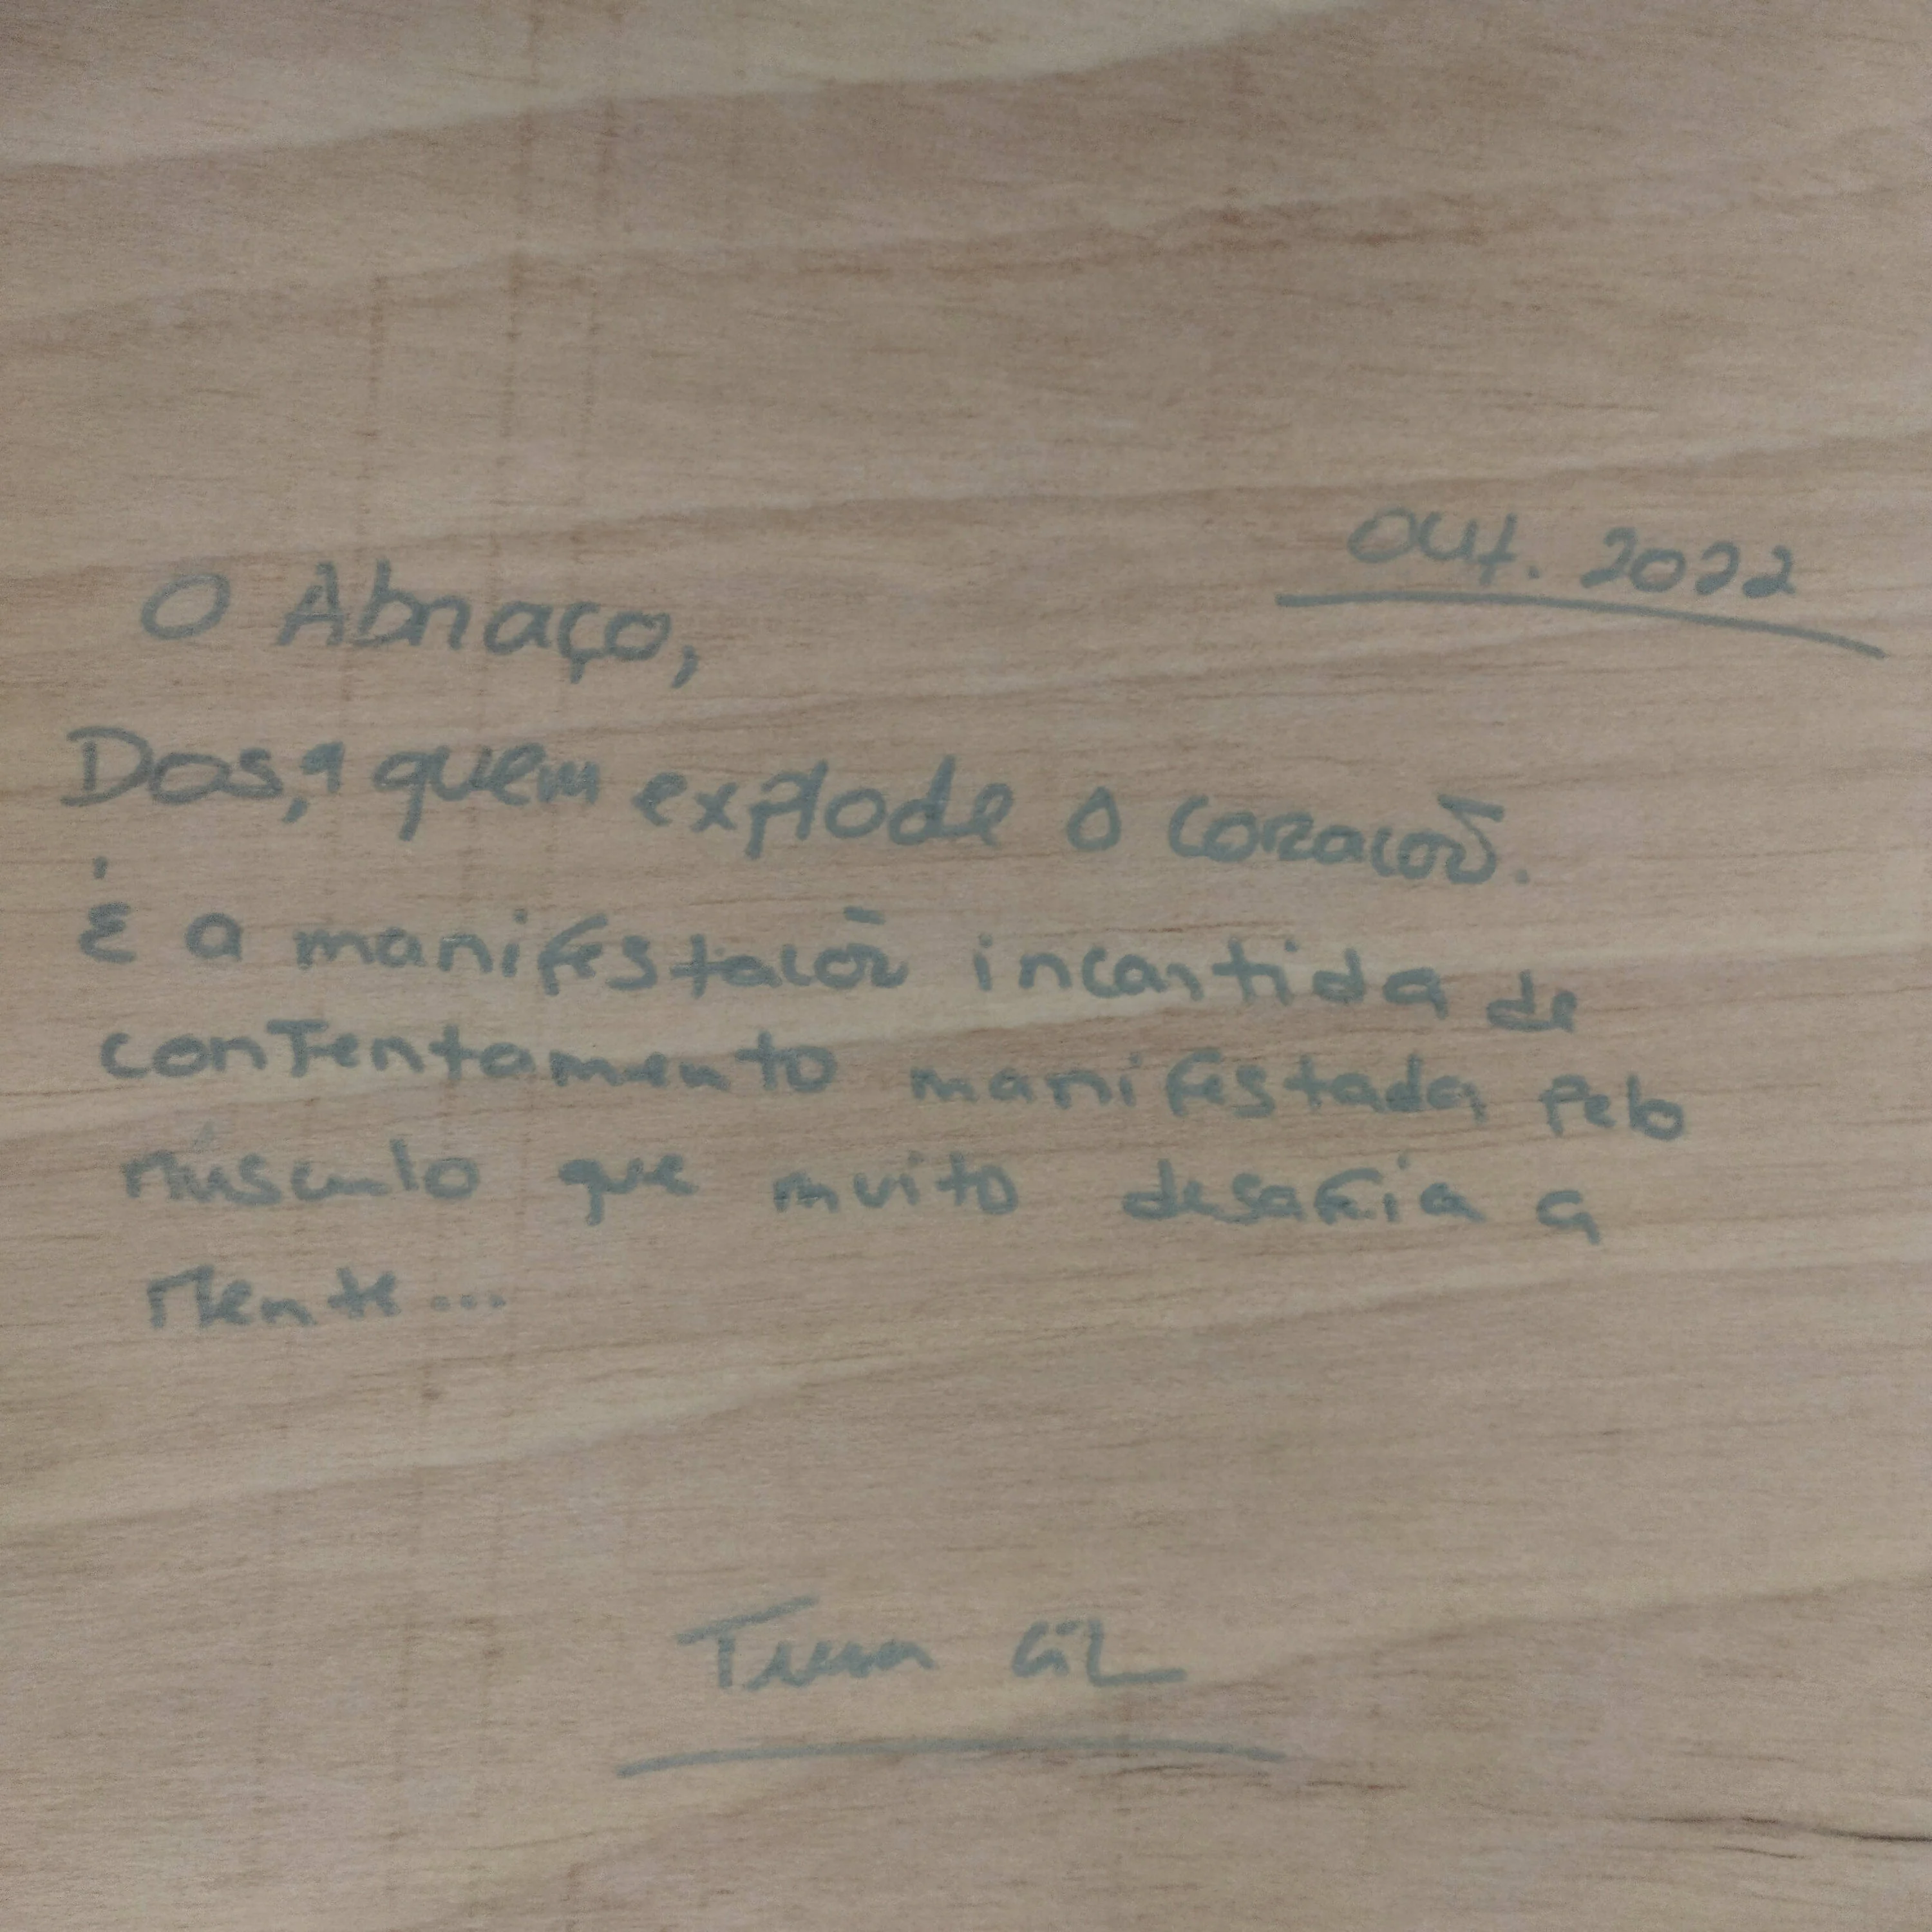 Out. 2022
O Abraço,
Dos, a quem explode o coracoõ.
É a manifestacoõ incontida de
contentamento manifestada pelo
músculo que muito desafia a
Mente...
Gil